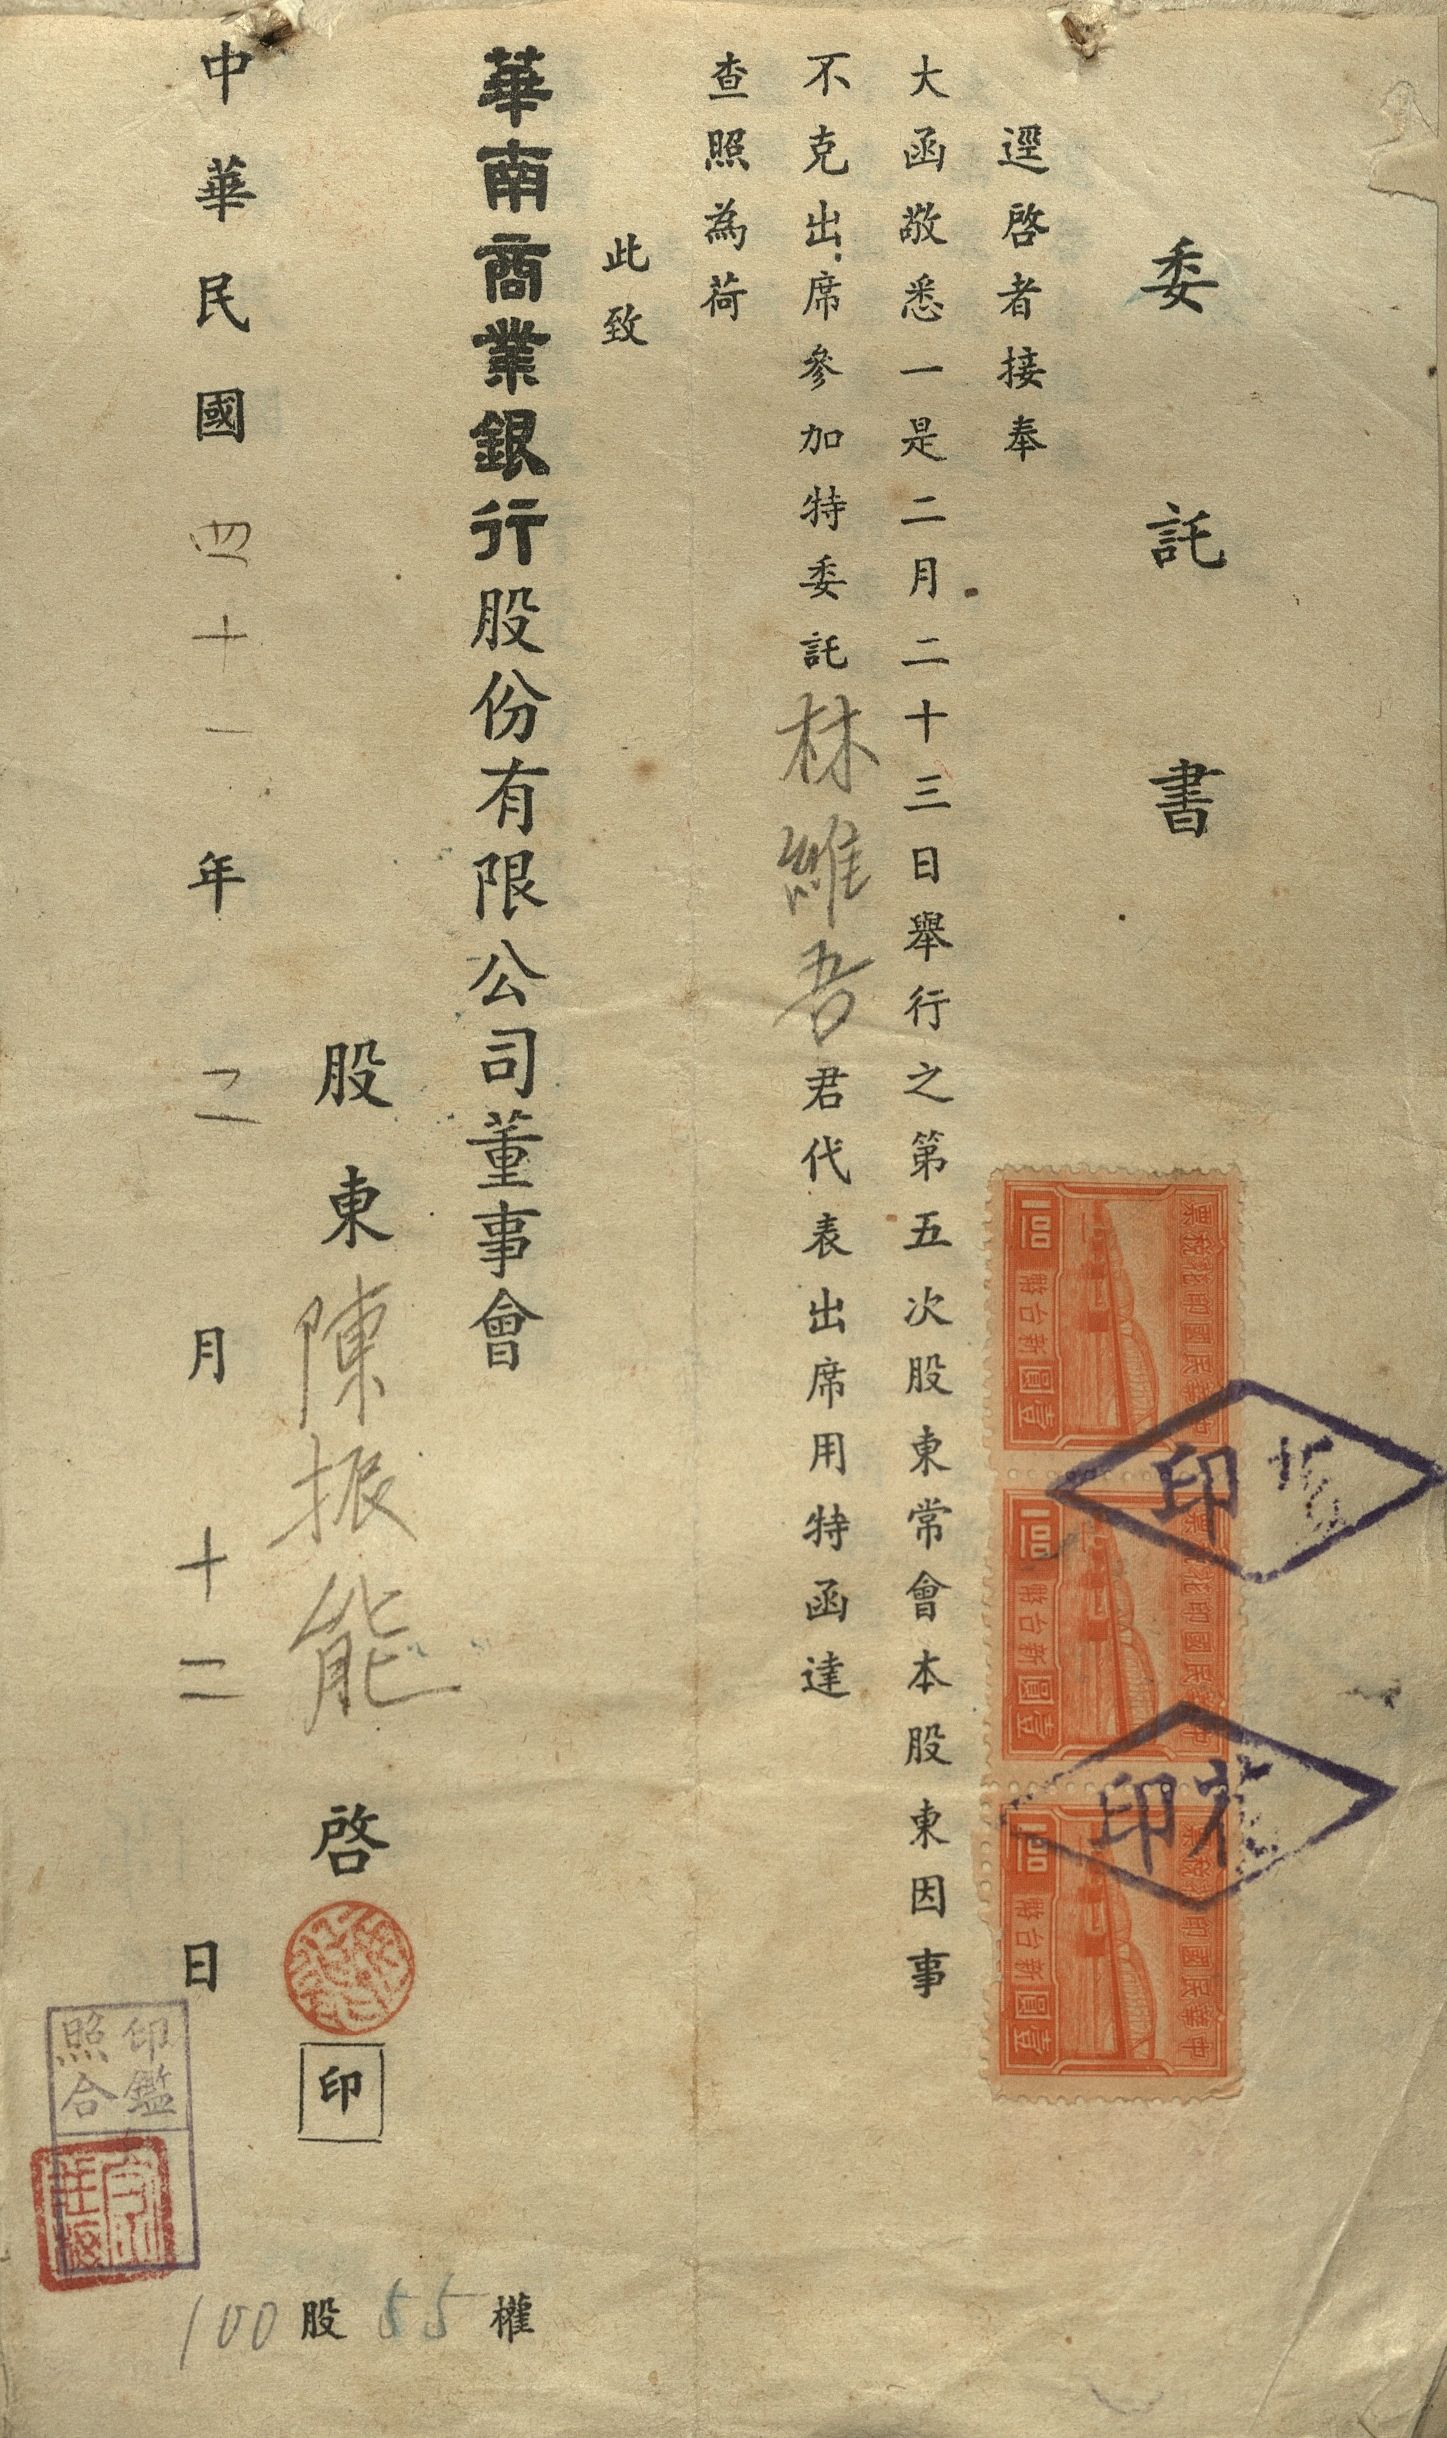 委託書
逕啓者接奉
大函敬悉一是二月二十三日舉行之第五次股東常會本股東因事
不克出席參加特委託林維吾君代表出席用特函達
查照為荷
此致
華南商業銀行股份有限公司董事會
股東陳振能啓
印
中華民國四十一年二月十二日
100股55權
印鑑
照合
中華民國印花稅票
新台幣
壹圓
1.00
中華民國印花稅票
新台幣
壹圓
1.00
中華民國印花稅票
新台幣
壹圓
1.00
印
花印